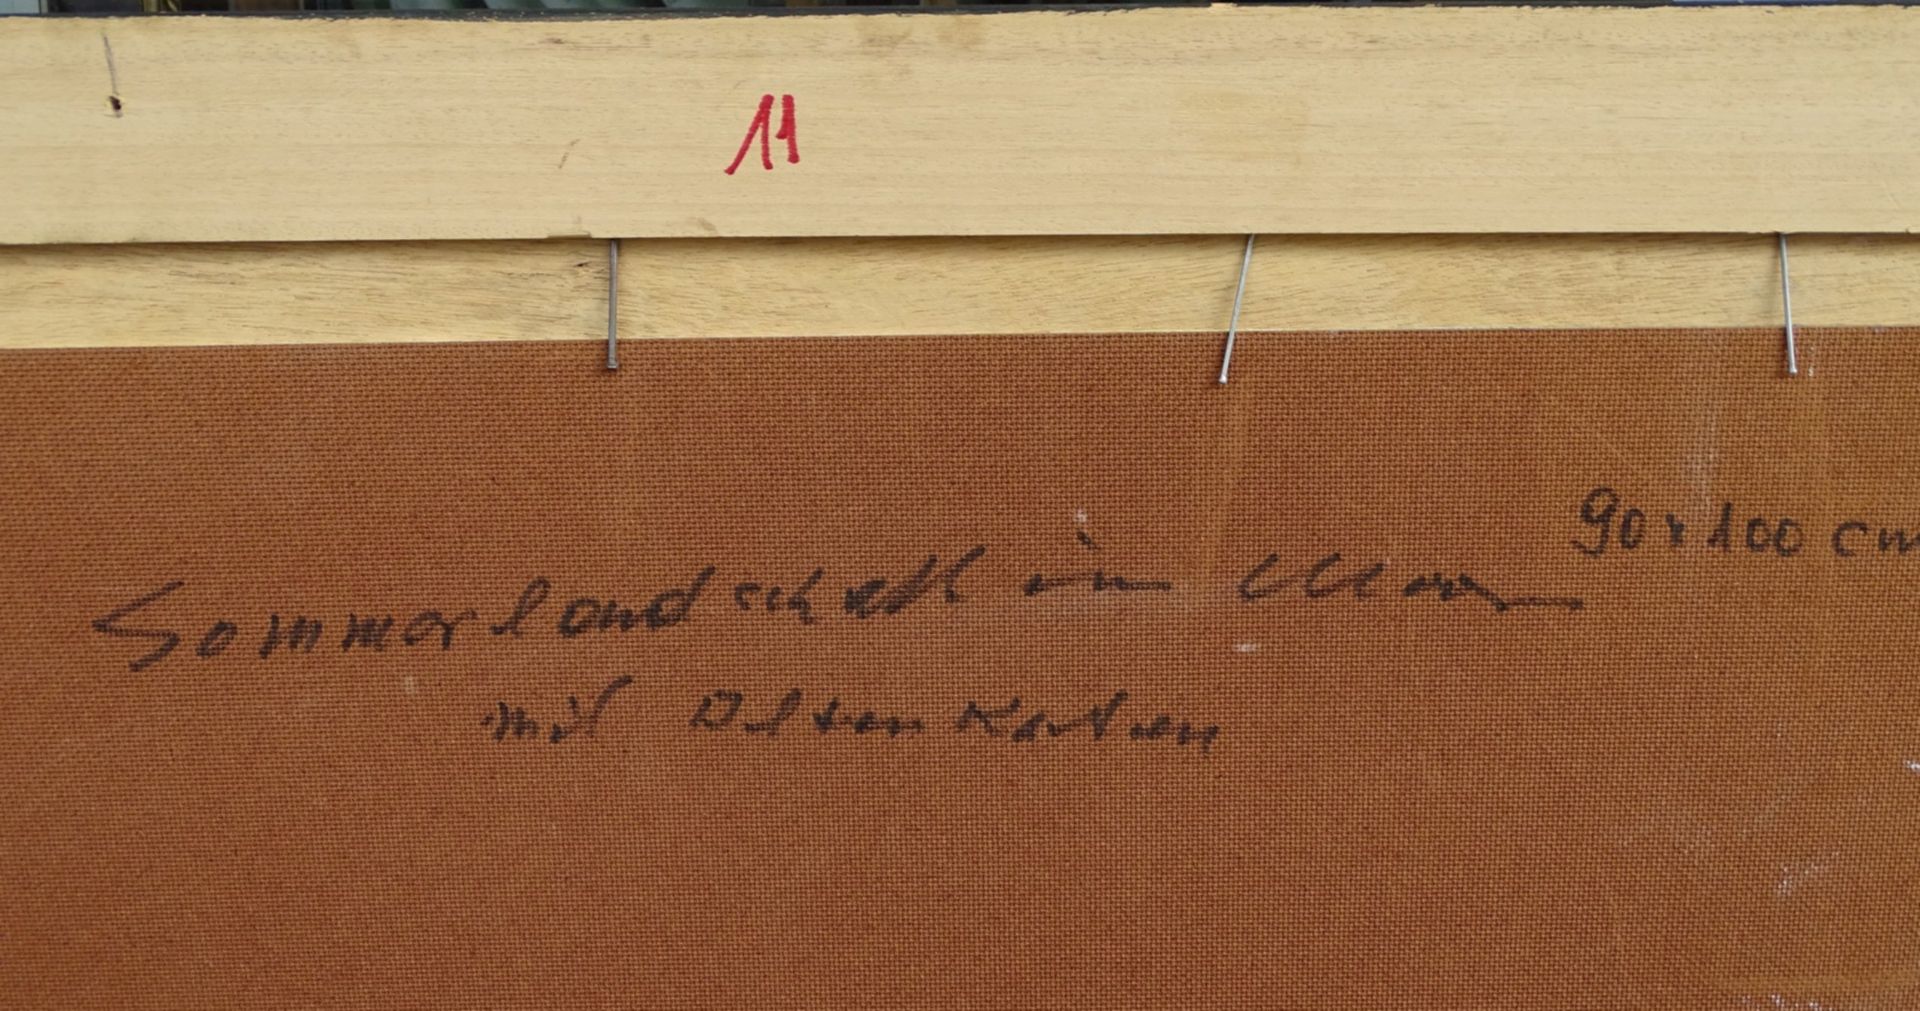 11
90 x 100 cm
Sommerlandschaft im
mit alten